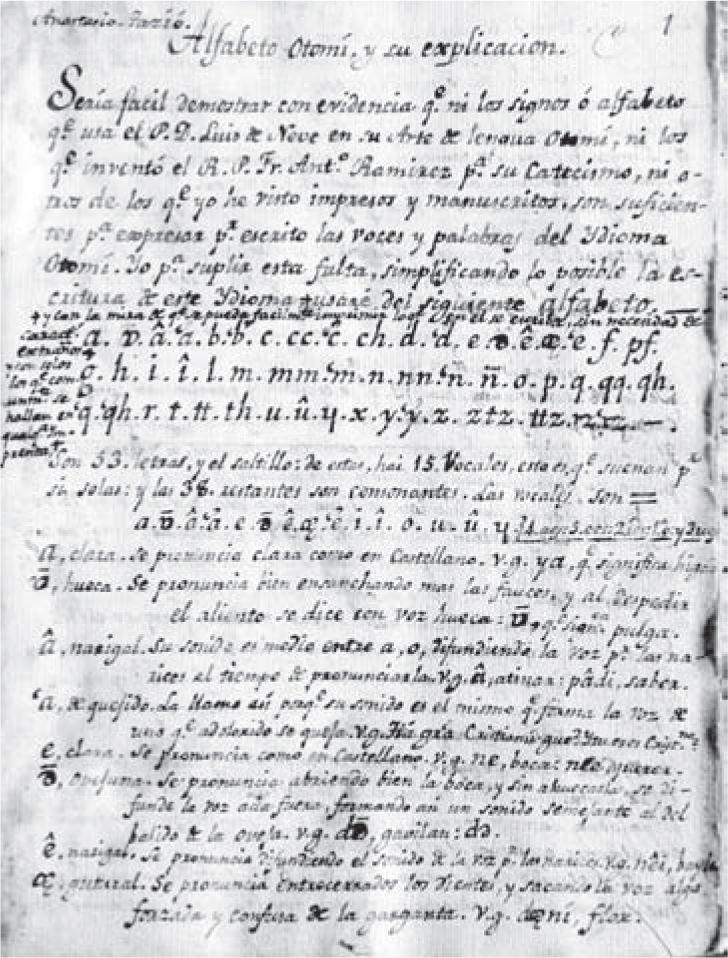 1
Alfabeto Otomí, y su explicacion.
Sería facil demostrar con evidencia q.e ni los signos ó alfabeto
q.e usa el P. D. Luis de Neve en su Arte de lengua Otomí, ni los
q.e inventó el R. P. Fr. Ant.o Ramirez p.a su Catecismo, ni o-
tros de los q.e yo he visto impresos y manuscritos, son suficien-
tes p.a expresar p.r escrito las voces y palabras del Ydioma
Otomí. Yo p.a suplir esta falta, simplificando lo posible la es-
critura de este Ydioma + usaré del siguiente alfabeto
+ y con la mira de q.e se pueda facilm.te imprimir lo q.e en él se escriba, sin necesidad de
caract.
extraños
con solos
los q.e com-
unm.te se
hallan en
imprenta +
a. ʊ̄. â. 'a. b. 'b. c. cc. 'c. ch. d. 'd. e. ê. æ. 'e. f. pf.
g. h. i. î. l. m. mm. 'm. n. nn. 'n. ñ. o. p. q. qq. qh.
'q. 'qh. r. t. tt. th. u. û. y. x. y. 'y. z. ztz. ttz.
Son 53. letras, y el saltillo: de estas, hai 15. Vocales, esto es, q.e suenan p.r
si solas: y las 38. restantes son consonantes. Las vocales son =
a. ʊ̄. â. 'a. e. ê. æ. 'e. i. î. o. u. û. y
a, clara. Se pronuncia clara como en Castellano. v.g. ya, q.e significa
ʊ̄, hueca. Se pronuncia bien ensanchando mas las fauces, y al despedir
el aliento se dice con voz hueca: ʊ̄, q.e sign.ca pulga.
â, narigal. Su sonido es medio entre a, o, difundiendo la voz p.r las na-
rices al tiempo de pronunciarla. v.g. â, atinar: pâdi, saber.
'a, de quejido. La llamo así porq.e su sonido es el mismo q.e forma la voz de
uno q.e adolorido se queja. v.g.
e, clara. Se pronuncia como en Castellano. v.g. ne, boca: nee, querer.
ovejuna. Se pronuncia abriendo bien la boca, y sin ahuecarla, se di-
funde la voz acia fuera, formando así un sonido semejante al del
balido de la oveja. v.g. gavilan:
ê, narigal. Se pronuncia difundiendo el sonido de la voz p.r las narices. v.g. nêi,
æ, gutural. Se pronuncia entrecerrados los dientes, y sacando la voz algo
forzada y confusa de la garganta. v.g. dæní, flor.